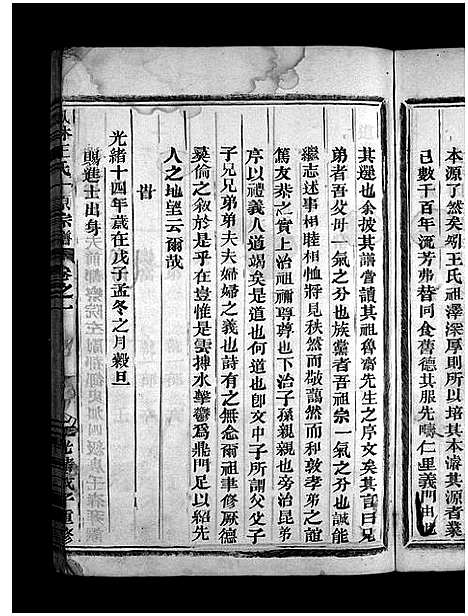 本源了然矣矧王氏祖澤深厚則所以培其本濬其源者業
已數千百年流芳弗替同食舊德其服先疇仁里義門由也
其選也余披其譜嘗讀其祖魯齋先生之序文矣其言曰兄
弟者吾父母一氣之分也族黨者吾祖宗一氣之分也誠能
繼志述事相睦相恤將見秩然而敬藹然而和敦孝弟之誼
篤友恭之實上治祖禰尊尊也下治子孫親親也旁治昆弟
序以禮義人道竭矣是道也何道也卽文中子所謂父父子
子兄兄弟弟夫夫婦婦之義也詩有之無念爾祖聿修厥德
彝倫之敘於是乎在豈惟是雲摶水擊鬱爲鼎門足以紹先
人之地望云爾哉
旹
光緒十四年歲在戊子孟冬之月穀旦
賜進士出身
王氏一原宗譜 卷之一
重修